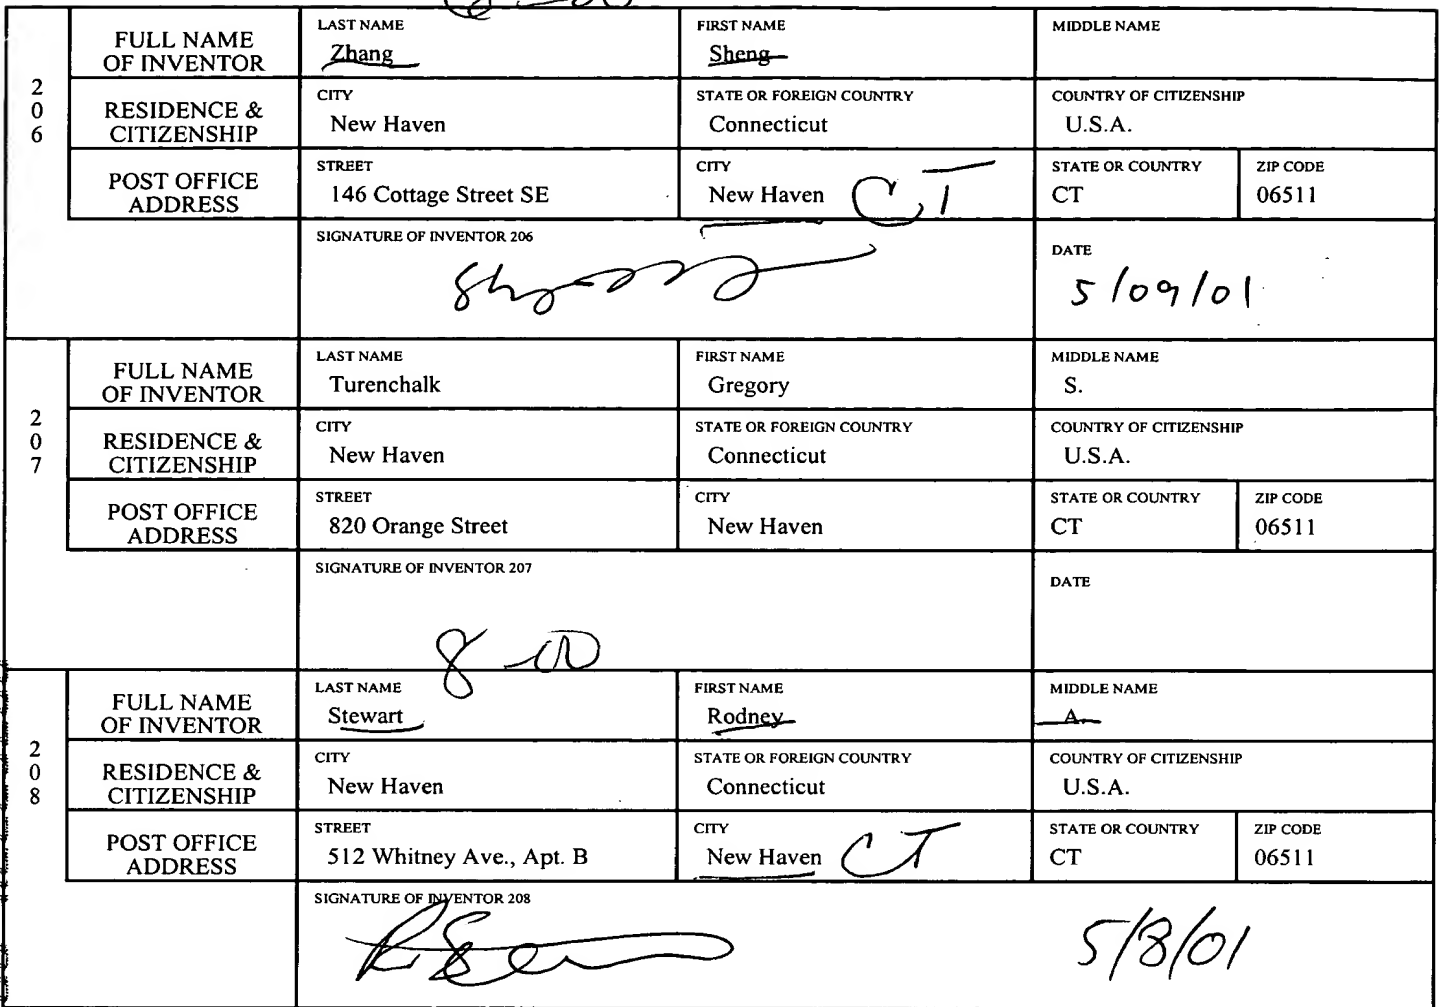 FULL NAME OF INVENTOR
LAST NAME
Zhang
FIRST NAME
Sheng
MIDDLE NAME
206
RESIDENCE & CITIZENSHIP
CITY
New Haven
STATE OR FOREIGN COUNTRY
Connecticut
COUNTRY OF CITIZENSHIP
U.S.A.
POST OFFICE ADDRESS
STREET
146 Cottage Street SE
CITY
New Haven CT
STATE OR COUNTRY
CT
ZIP CODE
06511
SIGNATURE OF INVENTOR 206
DATE
5/09/01
FULL NAME OF INVENTOR
LAST NAME
Turenchalk
FIRST NAME
Gregory
MIDDLE NAME
S.
207
RESIDENCE & CITIZENSHIP
CITY
New Haven
STATE OR FOREIGN COUNTRY
Connecticut
COUNTRY OF CITIZENSHIP
U.S.A.
POST OFFICE ADDRESS
STREET
820 Orange Street
CITY
New Haven
STATE OR COUNTRY
CT
ZIP CODE
06511
SIGNATURE OF INVENTOR 207
DATE
FULL NAME OF INVENTOR
LAST NAME
Stewart
FIRST NAME
Rodney
MIDDLE NAME
A.
208
RESIDENCE & CITIZENSHIP
CITY
New Haven
STATE OR FOREIGN COUNTRY
Connecticut
COUNTRY OF CITIZENSHIP
U.S.A.
POST OFFICE ADDRESS
STREET
512 Whitney Ave., Apt. B
CITY
New Haven CT
STATE OR COUNTRY
CT
ZIP CODE
06511
SIGNATURE OF INVENTOR 208
5/8/01